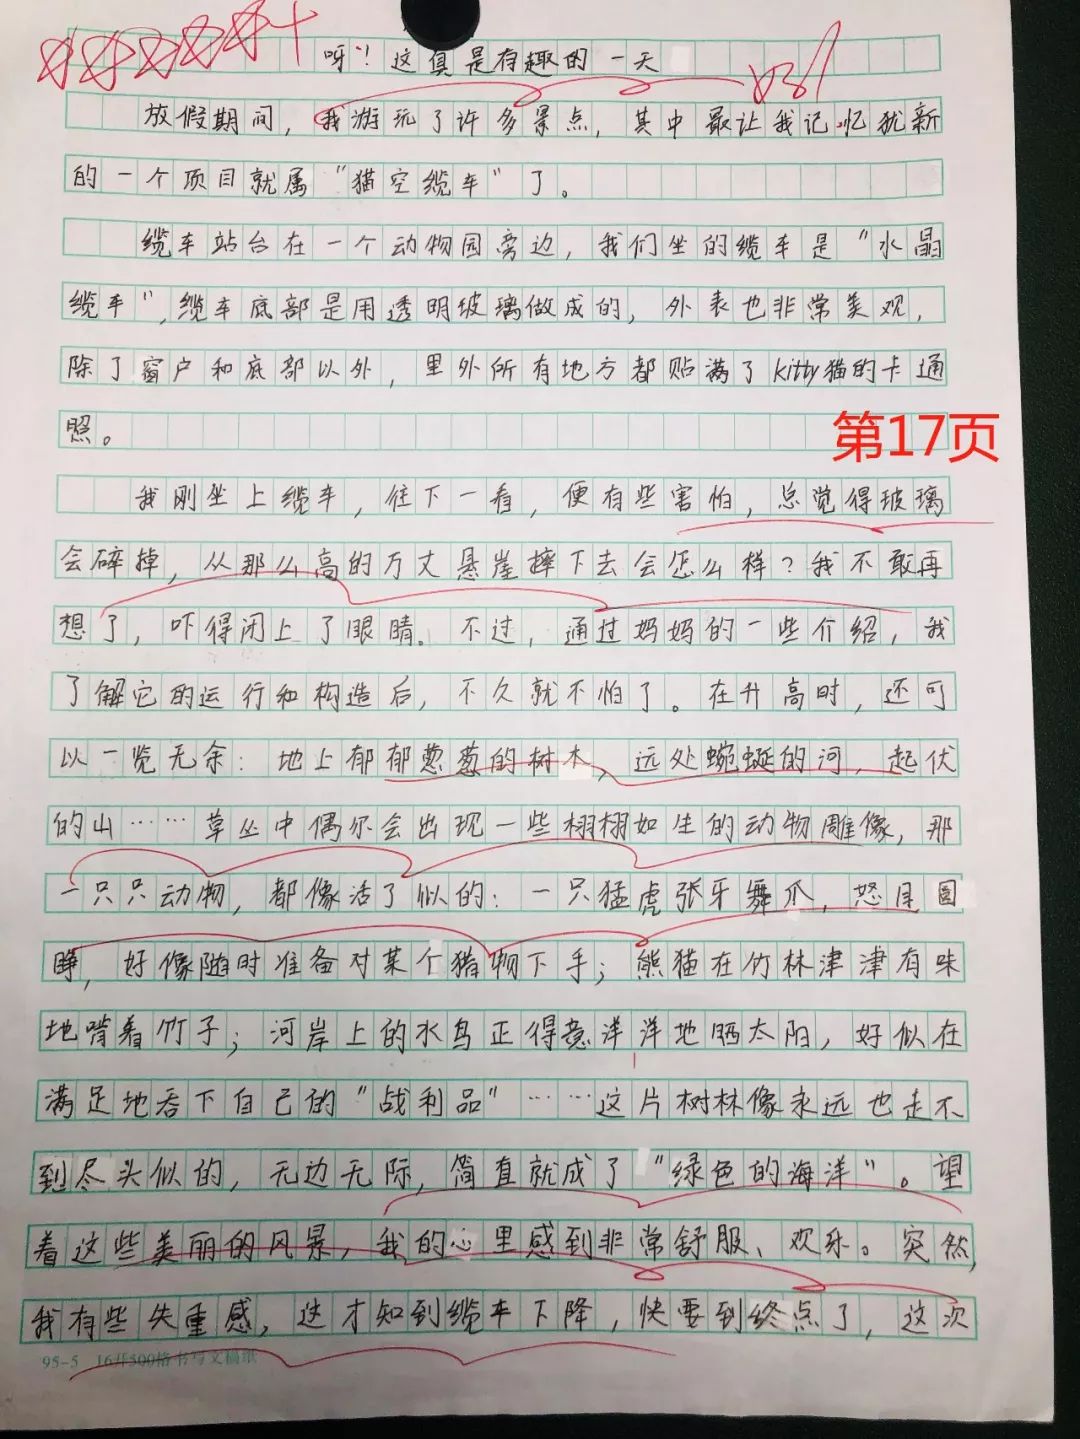 呀！这真是有趣的一天
好
放假期间，我游玩了许多景点，其中最让我记忆犹新
的一个项目就属“猫空缆车”了。
缆车站台在一个动物园旁边，我们坐的缆车是“水晶
缆车”，缆车底部是用透明玻璃做成的，外表也非常美观，
除了窗户和底部以外，里外所有地方都贴满了kitty猫的卡通
照。
第17页
我刚坐上缆车，往下一看，便有些害怕，总觉得玻璃
会碎掉，从那么高的万丈悬崖摔下去会怎么样？我不敢再
想了，吓得闭上了眼睛。不过，通过妈妈的一些介绍，我
了解它的运行和构造后，不久就不怕了。在升高时，还可
以一览无余：地上郁郁葱葱的树木，远处蜿蜒的河，起伏
的山……草丛中偶尔会出现一些栩栩如生的动物雕像，那
一只只动物，都像活了似的：一只猛虎张牙舞爪，怒目圆
睁，好像随时准备对某个猎物下手；熊猫在竹林津津有味
地啃着竹子；河岸上的水鸟正得意洋洋地晒太阳，好似在
满足地吞下自己的“战利品”……这片树林像永远也走不
到尽头似的，无边无际，简直就成了“绿色的海洋”。望
着这些美丽的风景，我的心里感到非常舒服、欢乐。突然，
我有些失重感，这才知到缆车下降，快要到终点了，这次
95-5 16开500格书写文稿纸